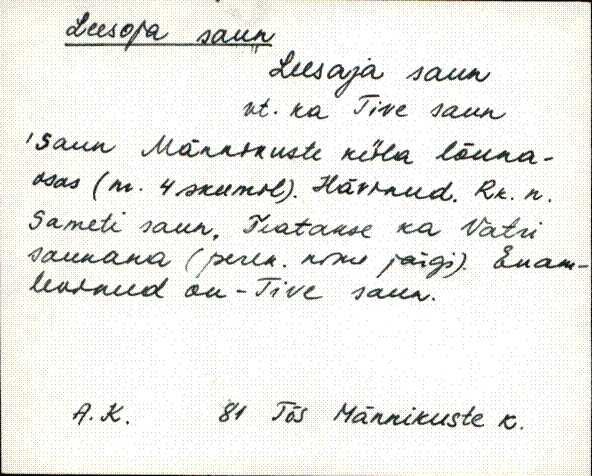 Leesoja saun
Leesaja saun
vt. ka Tive saun
Saun Männikuste küla lõuna-
osas (nr. 4 skeemil). Hävinud. Rk. n.
Sameti saun. Teatakse ka Vatri
saunana (peren. nime järgi). Enam-
levinud on - Tive saun.
A.K. 81 Tõs Männikuste k.